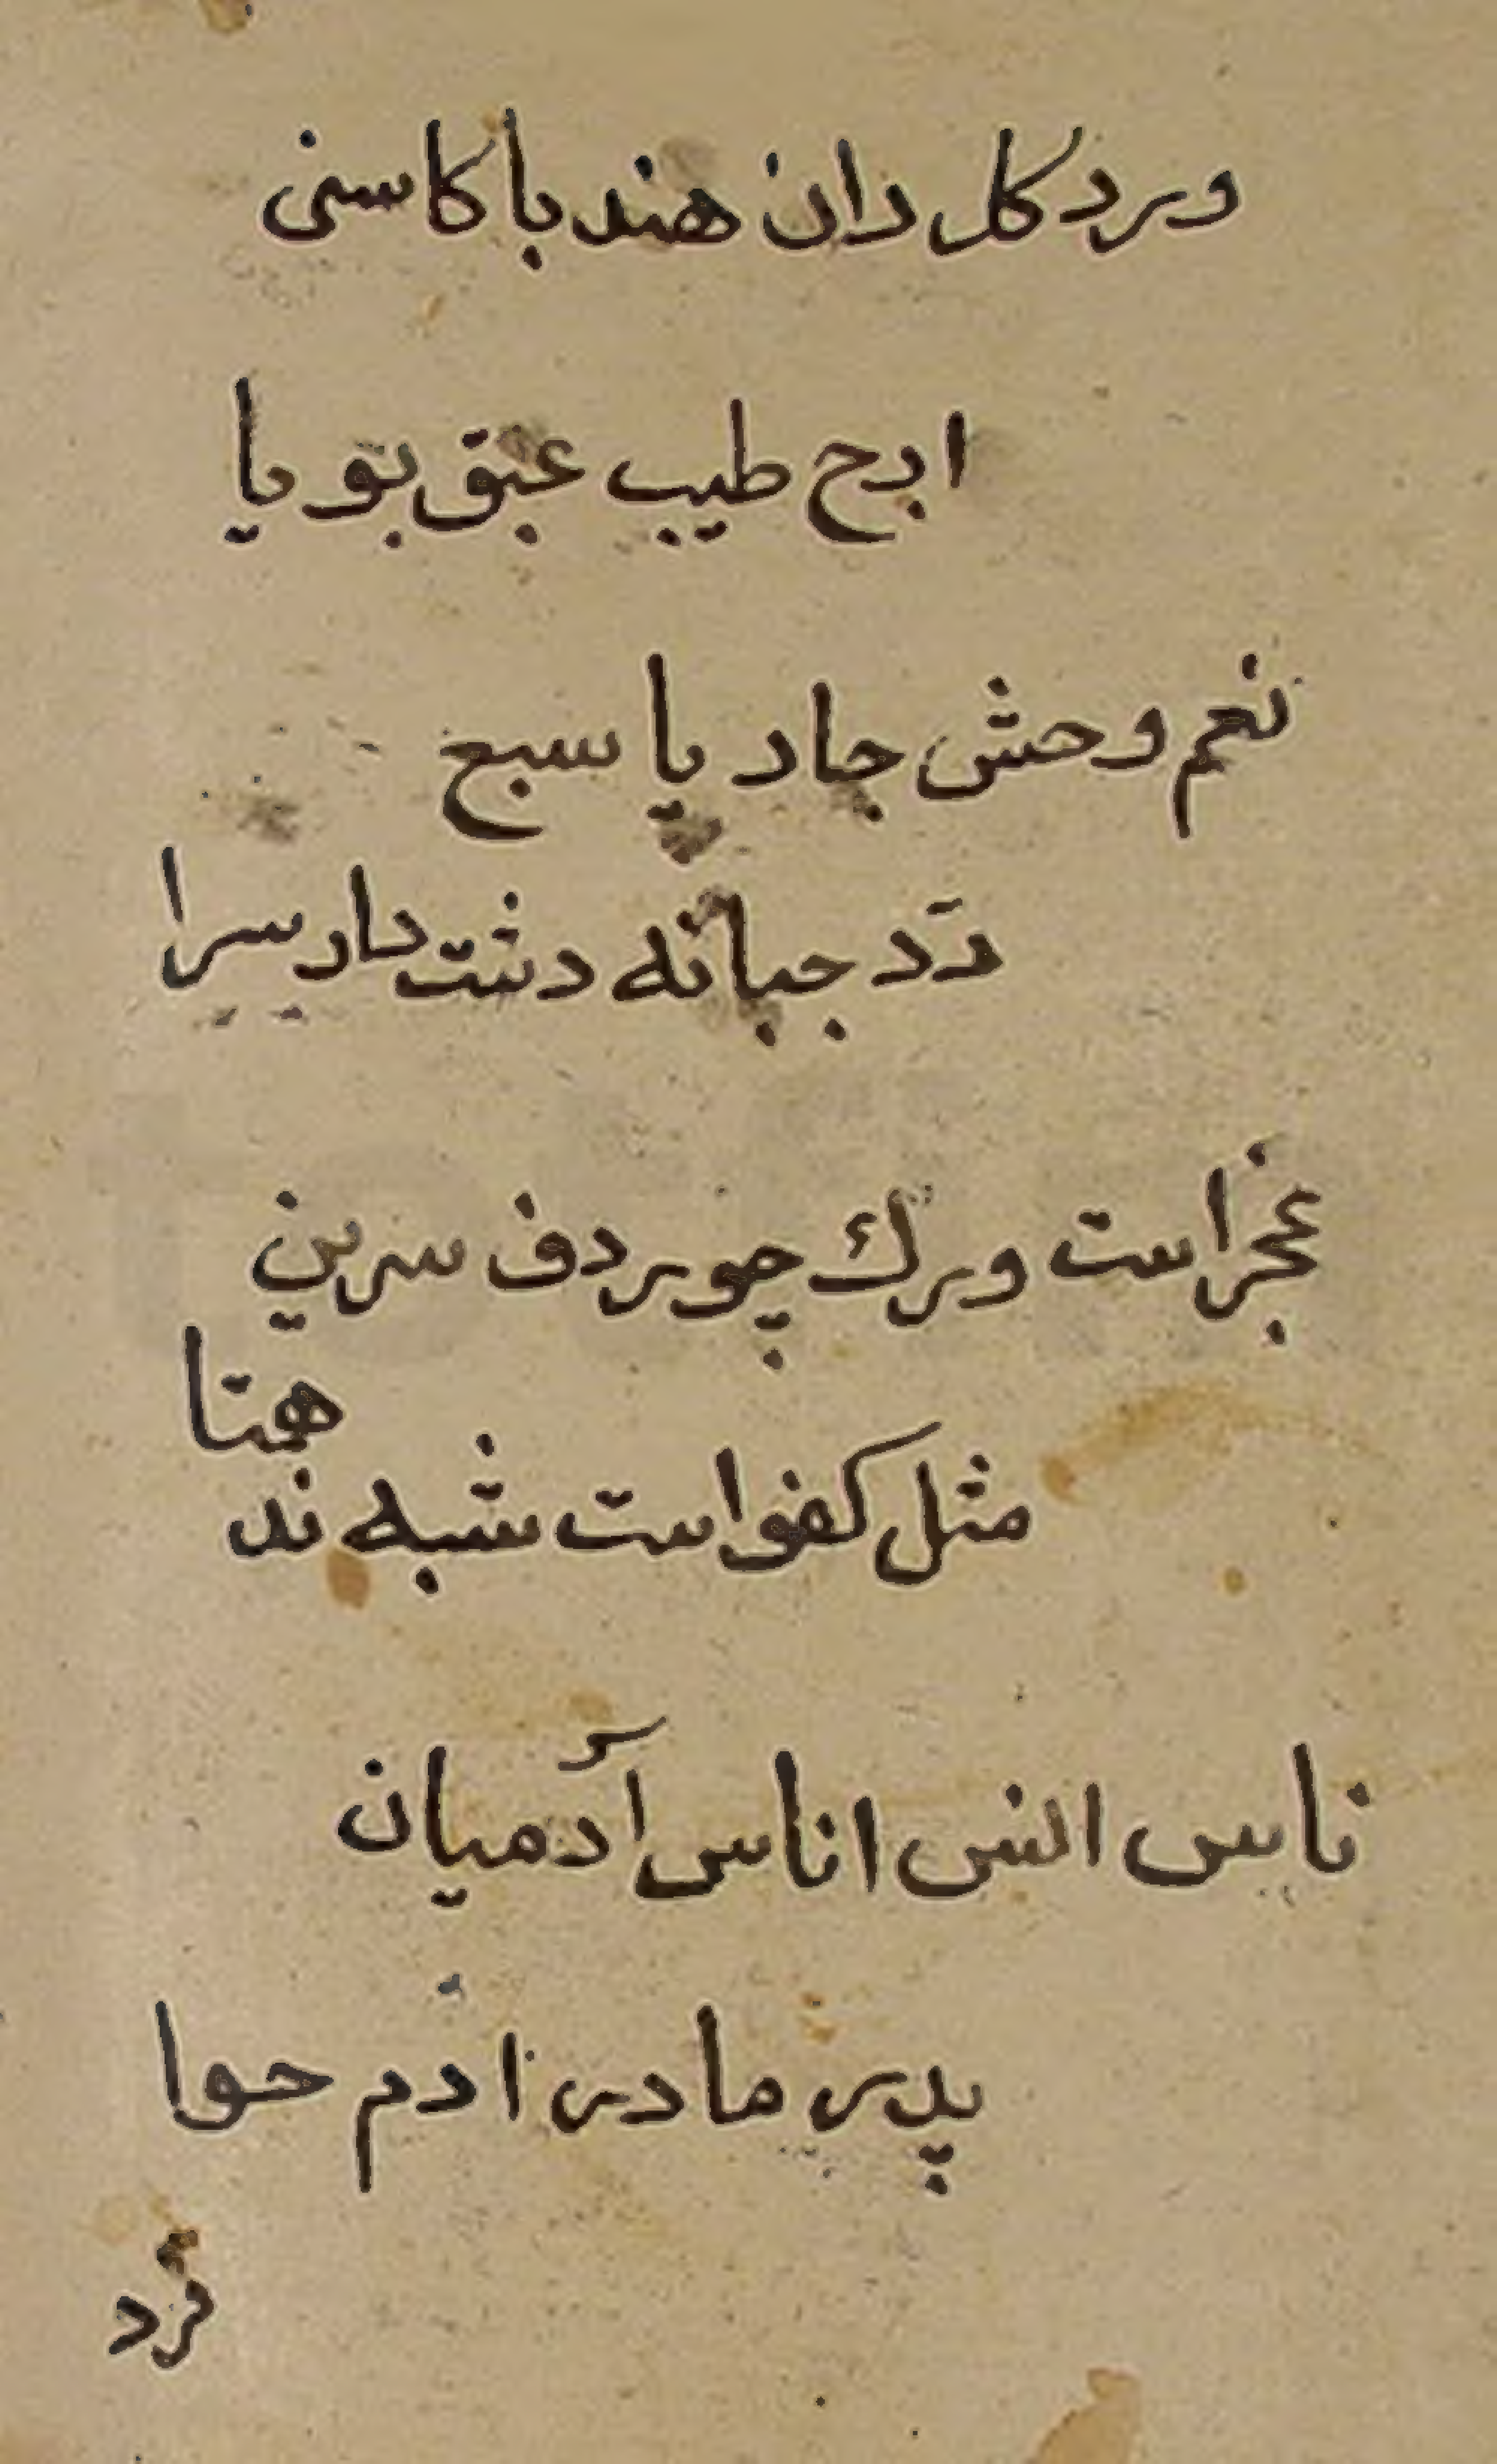 ورد كل دان هندبا كاسنى
ارج طيب عبق بو يا
نعم وحش چار پا سبع
دد جبانه دشت دار سرا
عجز است ورك چو ردف سرين
همتا
مثل كفو است شبه ند
ناس انس اناس آدميان
پدر مادر ادم حوا